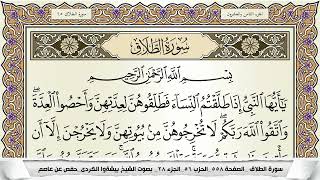 الجزء الثامن والعشرون
سورة الطلاق ٦٥
سُورَةُ الطَّلَاقِ
بِسْمِ اللَّهِ الرَّحْمَٰنِ الرَّحِيمِ
يَٰٓأَيُّهَا النَّبِيُّ إِذَا طَلَّقْتُمُ النِّسَآءَ فَطَلِّقُوهُنَّ لِعِدَّتِهِنَّ وَأَحْصُوا۟ الْعِدَّةَۖ
وَاتَّقُوا۟ اللَّهَ رَبَّكُمْۖ لَا تُخْرِجُوهُنَّ مِنۢ بُيُوتِهِنَّ وَلَا يَخْرُجْنَ إِلَّآ أَن
سورة الطلاق _ الصفحة ٥٥٨_ الحزب ٥٦_ الجزء ٢٨_ بصوت الشيخ بيشةوا الكردي_حفص عن عاصم